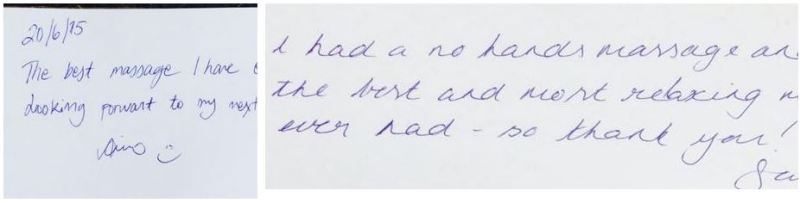 20/6/15
The best massage I have
Looking forward to my next
I had a no hands massage an
the best and most relaxing m
ever had - so thank you!